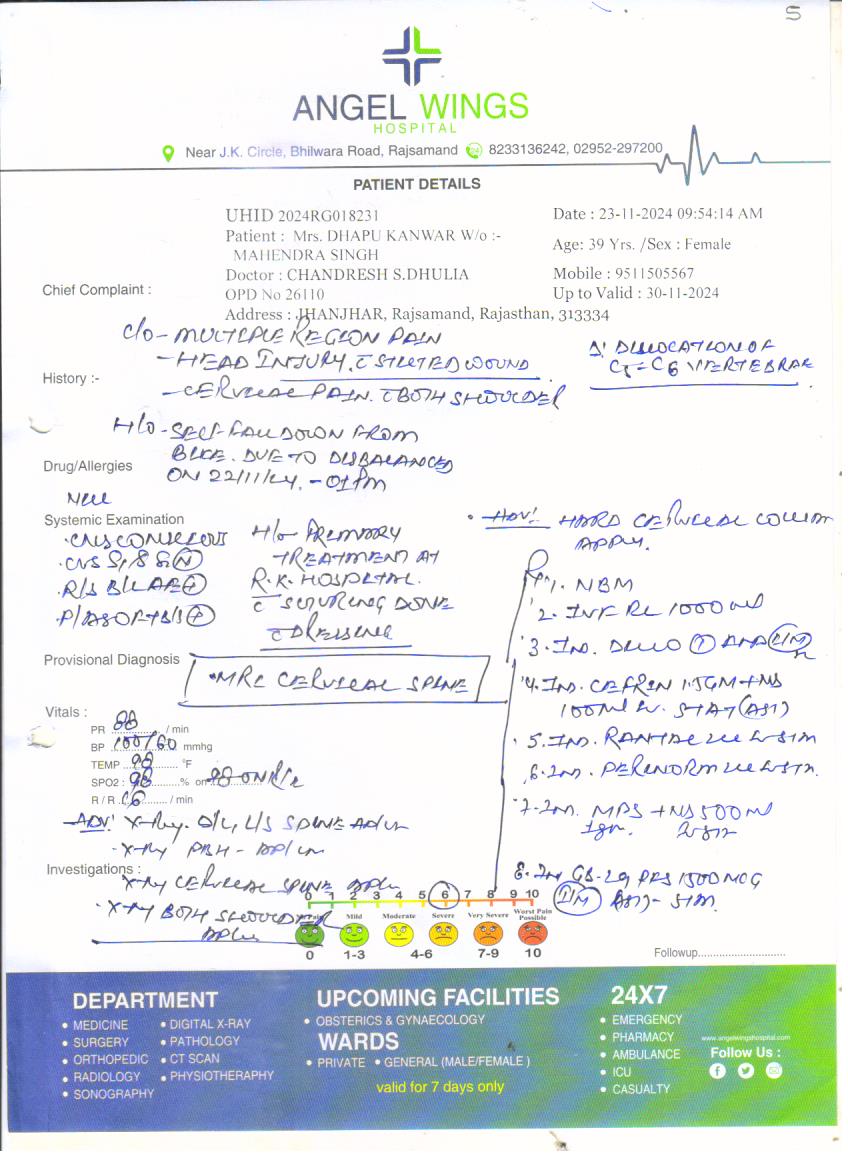 S
ANGEL WINGS
HOSPITAL
Near J.K. Circle, Bhilwara Road, Rajsamand 24 8233136242, 02952-297200
PATIENT DETAILS
UHID 2024RG018231
Date : 23-11-2024 09:54:14 AM
Patient : Mrs. DHAPU KANWAR W/o :-
MAHENDRA SINGH
Age: 39 Yrs. /Sex : Female
Doctor : CHANDRESH S.DHULIA
Mobile : 9511505567
Chief Complaint :
OPD No 26110
Up to Valid : 30-11-2024
Address : JHANJHAR, Rajsamand, Rajasthan, 313334
C/O - MULTIPLE REGION PAIN
- HEAD INJURY. C STUTED WOUND
DISLOCATION OF
C5-C6 VERTEBRAE
History :-
- CERVICAL PAIN. C BOTH SHOULDER
H/O - SELF FALL DOWN FROM
BIKE. DUE TO DISBALANCED
ON 22/11/24. - 01 PM
Drug/Allergies
NILL
Systemic Examination
. CNS CONSCIOUS
. CVS S1, S2 (N)
. R/S B/L AE (+)
. P/A SOFT B/S (+)
H/O - PRIMARY
TREATMENT AT
R.K. HOSPITAL.
C SUTURING DONE
C DRESSING
. ADV! HARD CERVICAL COLLAR
APPLY.
1. NBM
2. INF RL 1000 ml
3. INJ. (1) AMP (I/M)
4. INJ. CEFRIN 1.5GM + NS
100ml STAT (AST)
5. INJ. RANTAC
6. INJ. PERINORM
7. INJ. MPS + NS 500 ml
1gm.
8. INJ 1500 MCG
(I/M) AST)-
Provisional Diagnosis
. MRI CERVICAL SPINE
Vitals :
PR 88 / min
BP 100/60 mmhg
TEMP 98 °F
SPO2 : 98 % on 98 ON R/A
R / R 16 / min
ADV! X-Ray. D/L, L/S SPINE AP/LAT
- X-Ray PBH - AP/LAT
Investigations :
X-Ray CERVICAL SPINE AP/LAT
. X-Ray BOTH SHOULDER
AP/LAT
0 1 2 3 4 5 6 7 8 9 10
No Pain Mild Moderate Severe Very Severe Worst Pain Possible
0 1-3 4-6 7-9 10
Followup............................
DEPARTMENT
• MEDICINE
• SURGERY
• ORTHOPEDIC
• RADIOLOGY
• SONOGRAPHY
• DIGITAL X-RAY
• PATHOLOGY
• CT SCAN
• PHYSIOTHERAPHY
UPCOMING FACILITIES
• OBSTERICS & GYNAECOLOGY
WARDS
• PRIVATE • GENERAL (MALE/FEMALE )
valid for 7 days only
24X7
• EMERGENCY
• PHARMACY
• AMBULANCE
• ICU
• CASUALTY
www.angelwingshospital.com
Follow Us :